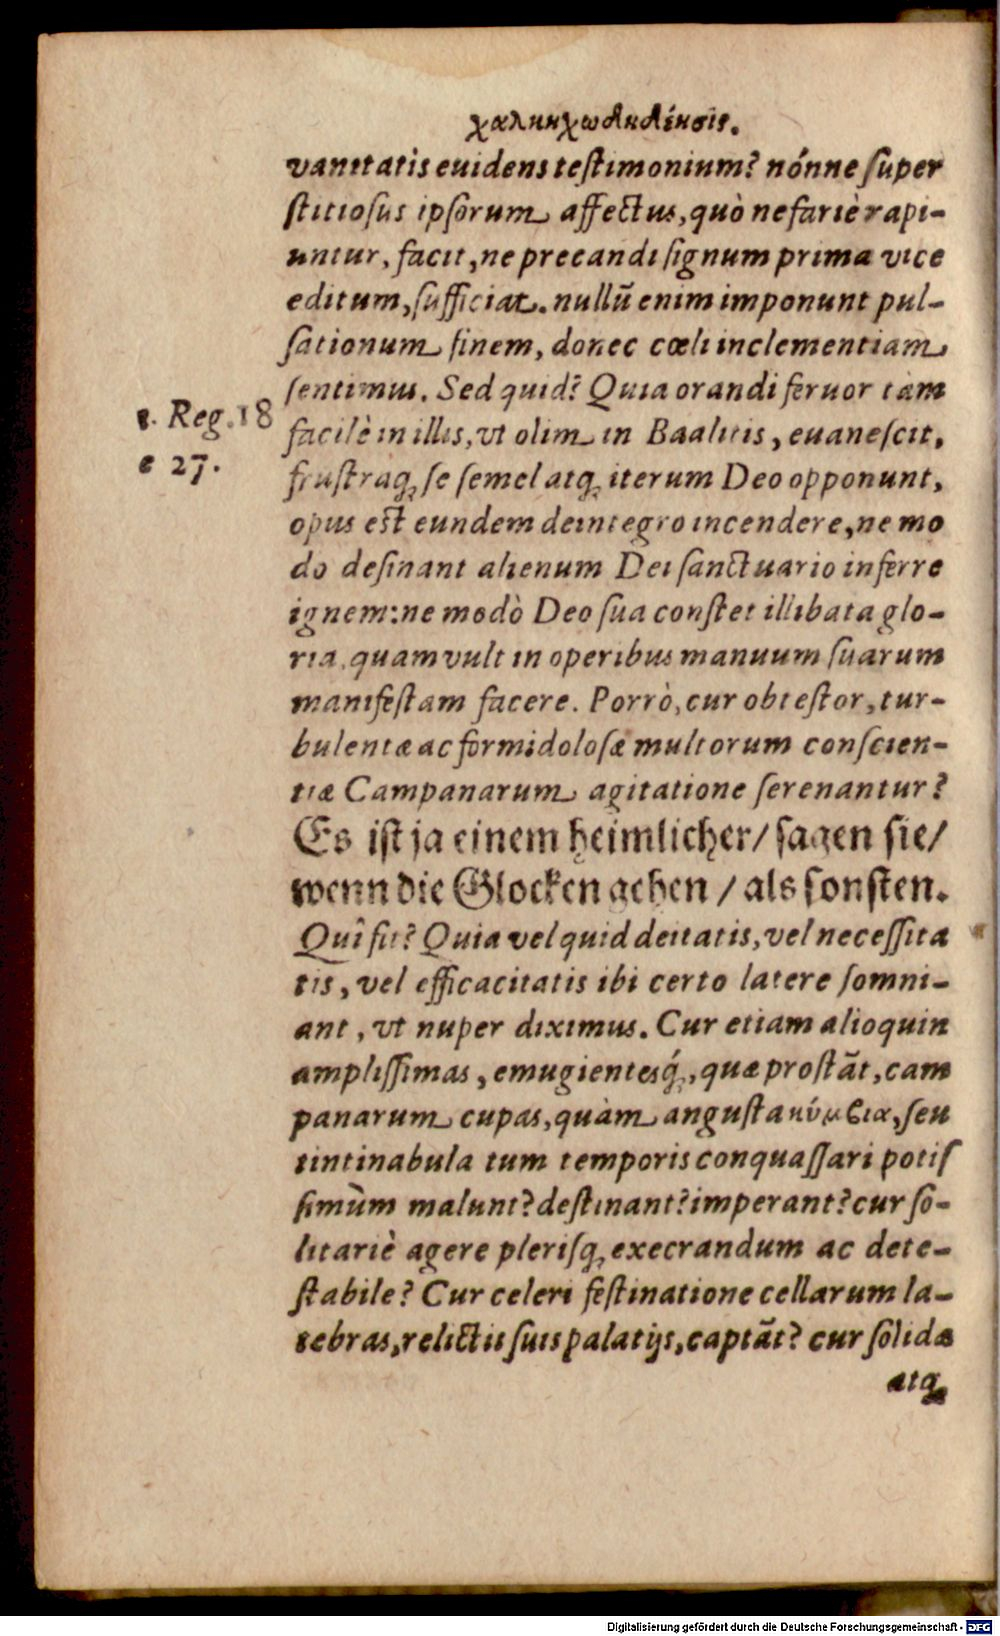 vanitatis euidens testimonium? nónne super
stitiosus ipsorum affectus, quò nefariè rapi-
untur, facit, ne precandi signum prima vice
editum, sufficiat. nullũ enim imponunt pul-
sationum finem, donec cœli inclementiam
sentimus. Sed quid? Quia orandi feruor tàm
1. Reg. 18
facilè in illis, vt olim in Baalitis, euanescit,
e 27.
frustraq́; se semel atq; iterum Deo opponunt,
opus est eundem deintegro incendere, ne mo
do desinant alienum Dei sanctuario inferre
ignem: ne modò Deo sua constet illibata glo-
ria, quam vult in operibus manuum suarum
manifestam facere. Porrò, cur obtestor, tur-
bulentæ ac formidolosæ multorum conscien-
tiæ Campanarum agitatione serenantur?
Es ist ja einem heimlicher/ sagen sie/
wenn die Glocken gehen / als sonsten.
Quî fit? Quia vel quid deitatis, vel necessita
tis, vel efficacitatis ibi certo latere somni-
ant, vt nuper diximus. Cur etiam alioquin
amplissimas, emugientesq́;, quæ prostãt, cam
panarum cupas, quàm angusta κύμβια, seu
tintinabula tum temporis conquassari potis
simùm malunt? destinant? imperant? cur so-
litariè agere plerisq; execrandum ac dete-
stabile? Cur celeri festinatione cellarum la-
tebras, relictis suis palatijs, captãt? cur solidæ
atq;
Digitalisierung gefördert durch die Deutsche Forschungsgemeinschaft - DFG